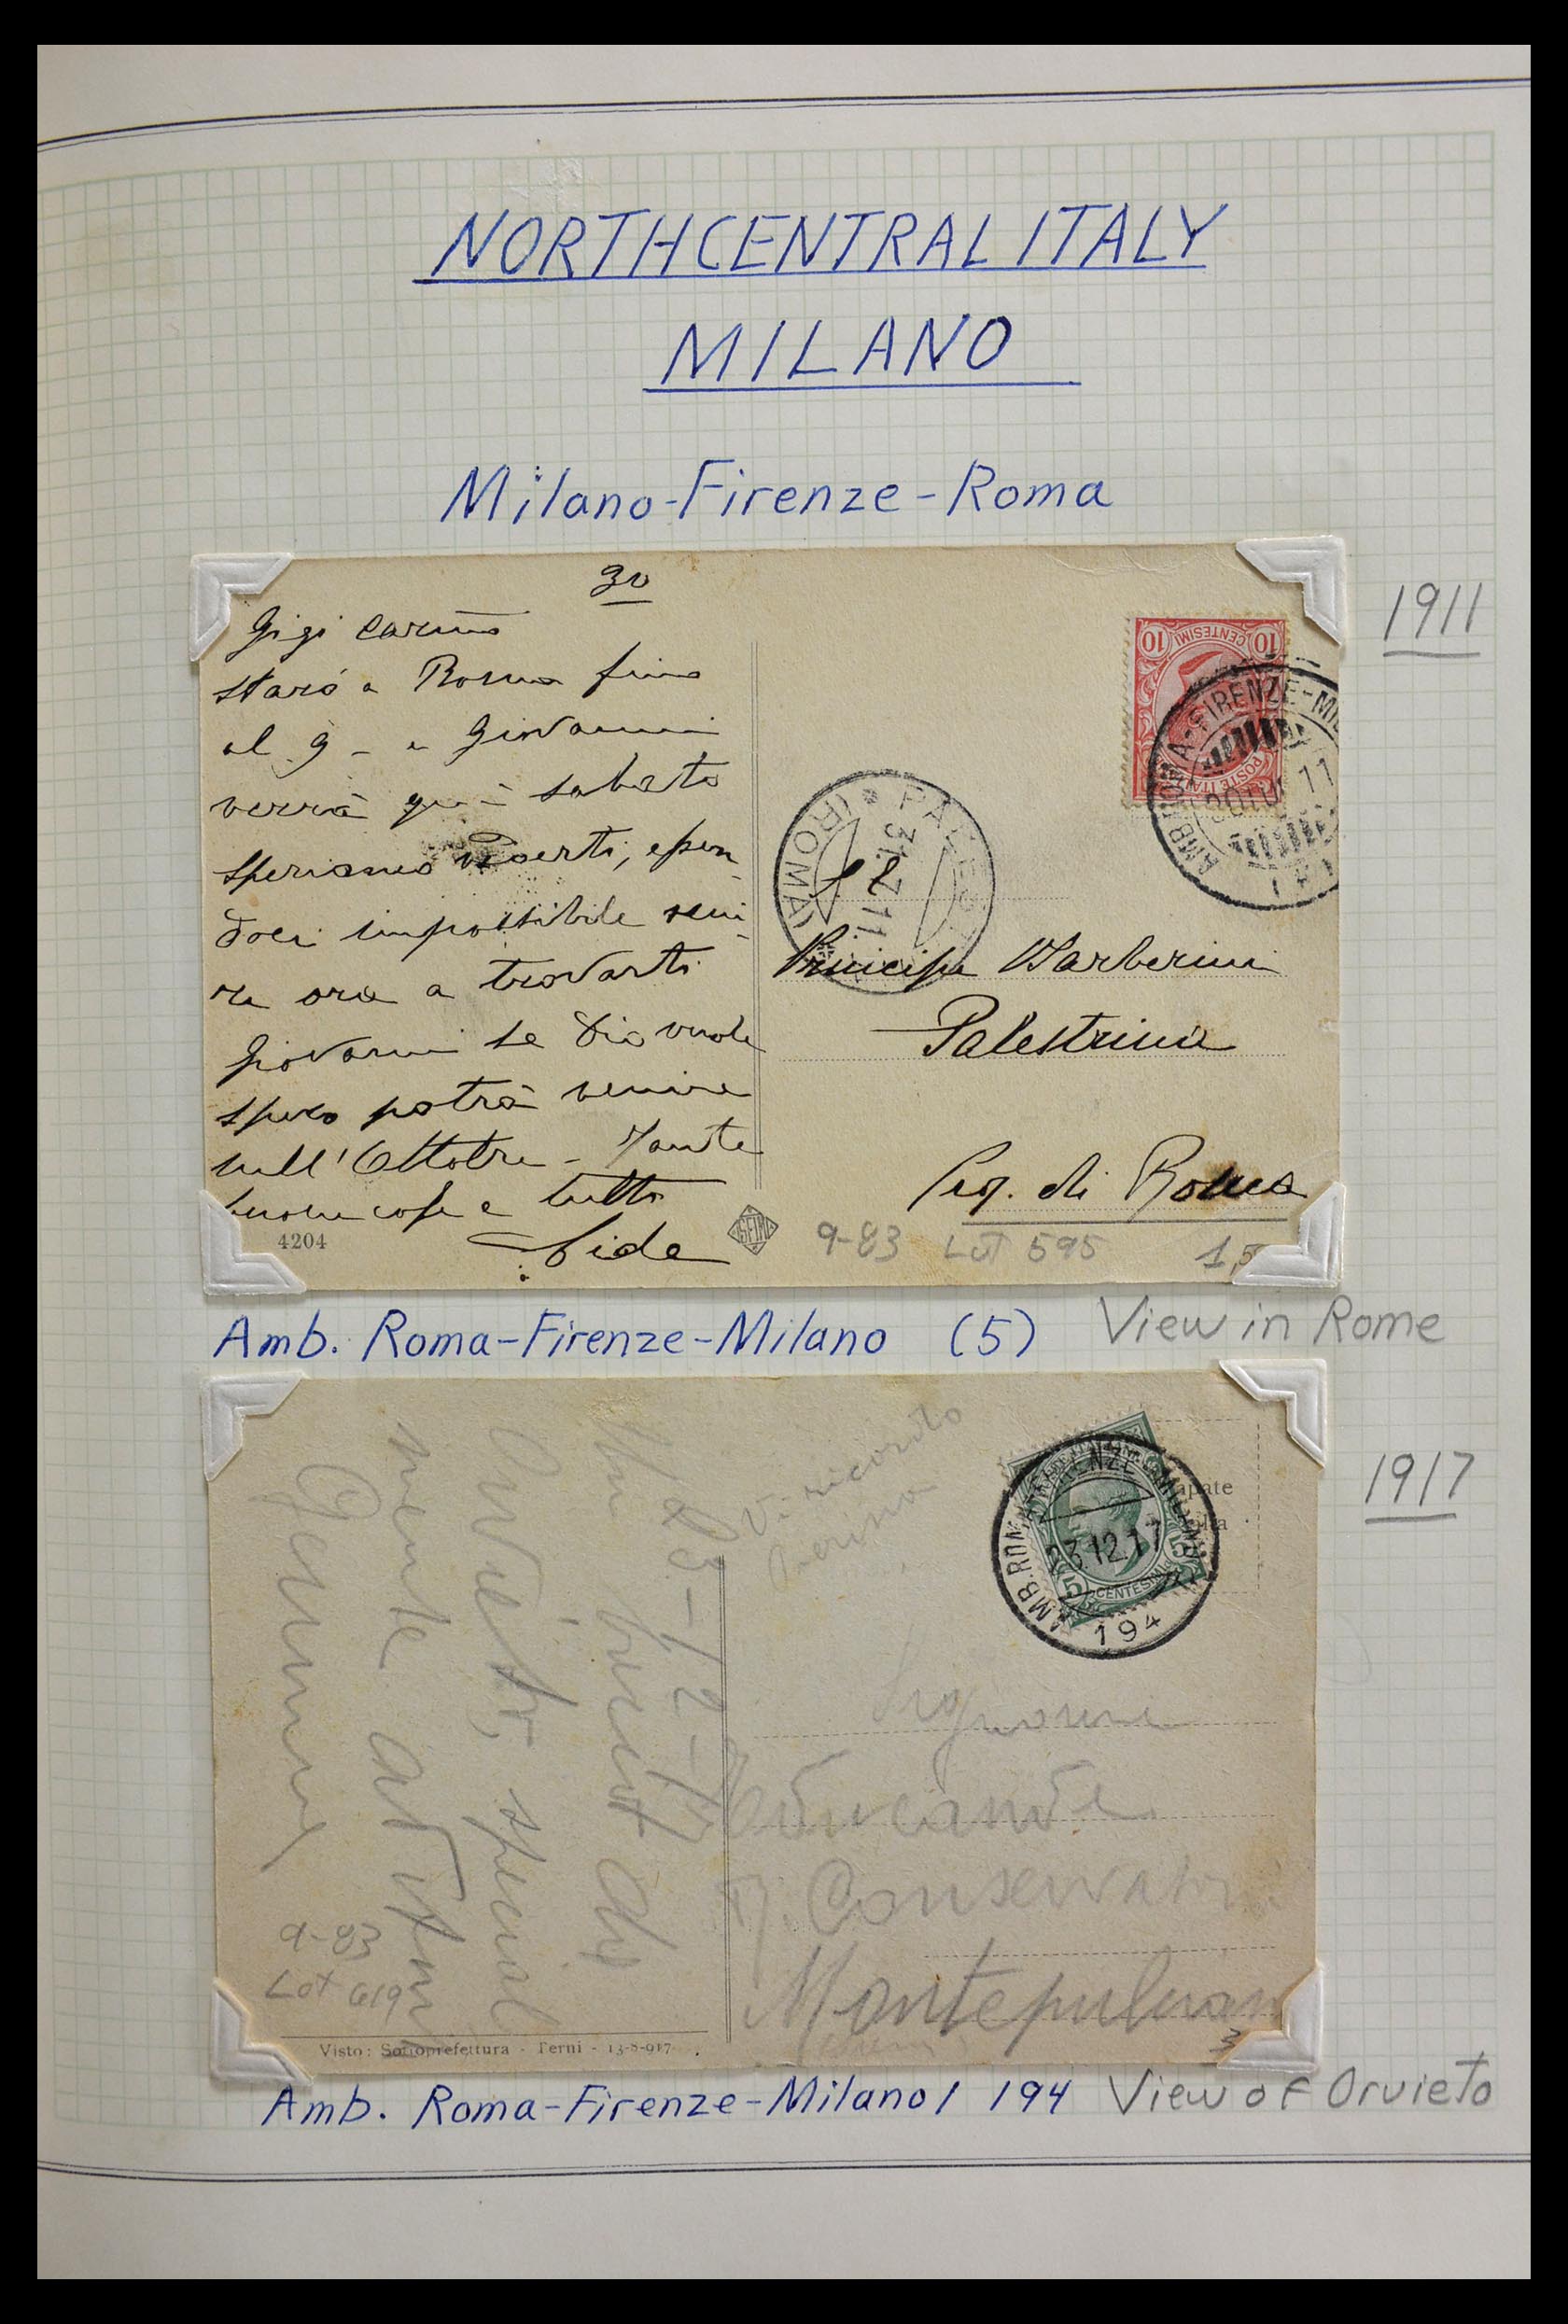 NORTHCENTRAL ITALY
MILANO
Milano-Firenze-Roma
1911
30
Gigi
starò a Roma fino
al 9 - Giovanni
verrà quì sabato
speriamo
doci impossibile veni-
re ora a trovarti
Giovanni se Dio vuole
spero potrà venire
nell'Ottobre - Tante
buone cose a tutti
4204
10 CENTESIMI 10
POSTE ITAL
AMB. ROMA-FIRENZE-MI
30 LU 11
(5)
PALEST
(ROMA)
31. 7 11
12
Principe Barberini
Palestrina
di Roma
9-83 Lot 595 1,5
Amb. Roma-Firenze-Milano (5) View in Rome
1917
Vi ricordo
25-12-17
Orvieto,
5 CENTESIMI 5
AMB. ROMA-FIRENZE-MILANO
23.12.17
194
Signorine
Educande
Conservatorio
Montepulcian
9-83
Lot 619
Visto: Sottoprefettura - Terni - 13-8-917.
3
Amb. Roma-Firenze-Milano / 194 View of Orvieto